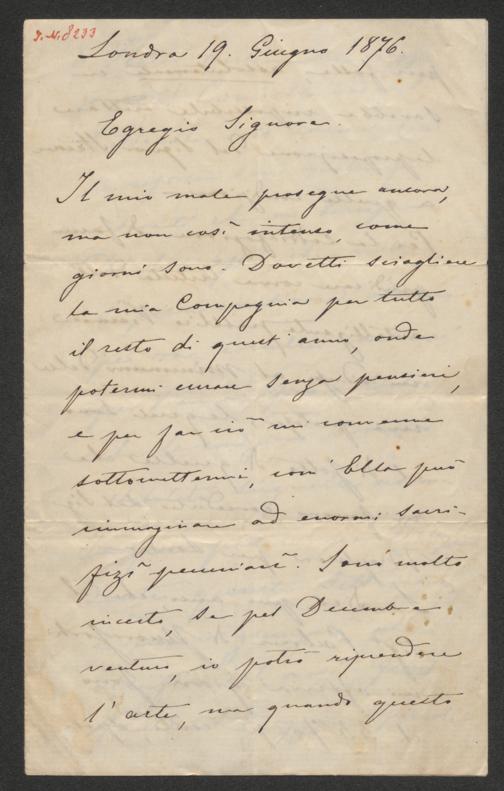 J.N. 8233
Londra 19. Giugno 1876.
Egregio Signore.
Il mio male prosegue ancora,
ma non così intenso, come
giorni sono. Dovetti sciogliere
la mia Compagnia per tutto
il resto di quest'anno, onde
potermi curare senza pensieri,
e per far ciò mi convenne
sottomettermi, com' Ella può
immaginare ad enormi sacri-
fizî pecuniarî. Sono molto
incerto, se pel Decembre
venturo, io potrò riprendere
l'arte, ma quando questo